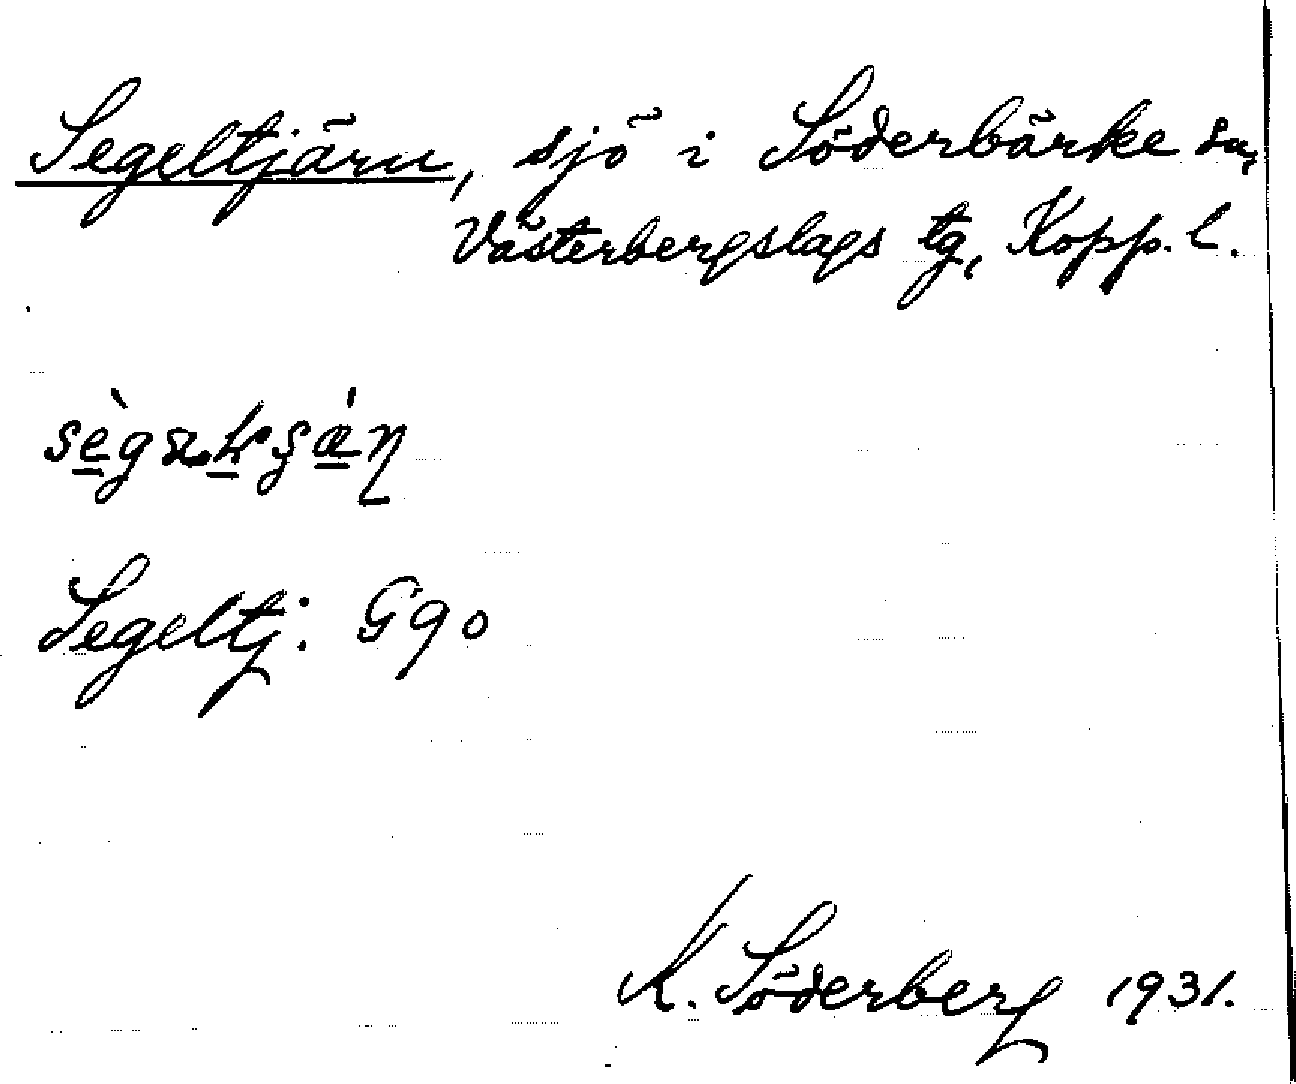 Segeltjärn, sjö i Söderbärke sn,
Västerbergslags tg, Kopp. l.
Segeltj. G90
K. Söderberg 1931.